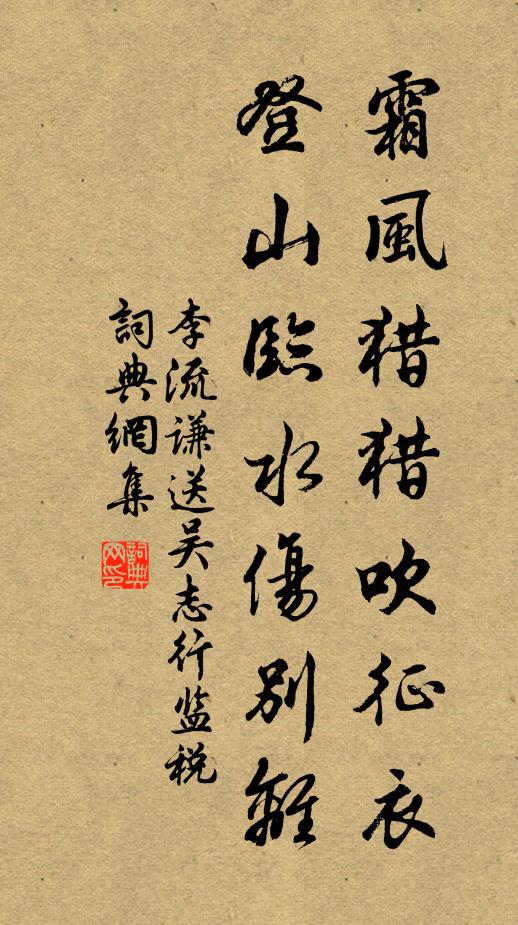 霜風猎猎吹征衣
登山臨水傷別離
李流谦送吴志行监税
詞典網集
詞典网印